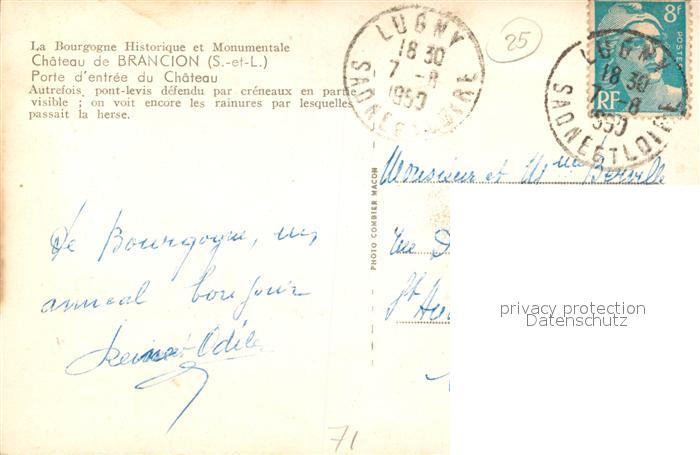 La Bourgogne Historique et Monumentale
Château de BRANCION (S.-et-L.)
Porte d'entrée du Château
Autrefois, pont-levis défendu par créneaux en partie
visible ; on voit encore les rainures par lesquelles
passait la herse.
LUGNY
18 30
7 - 8
1950
SAONE ET LOIRE
25
8f
POSTES
RF
LUGNY
18 30
7 - 8
1950
SAONE ET LOIRE
PHOTO COMBIER MACON
Monsieur et Mme Berville
rue
St
De Bourgogne, un
amical bonjour
Odile
71
privacy protection
Datenschutz